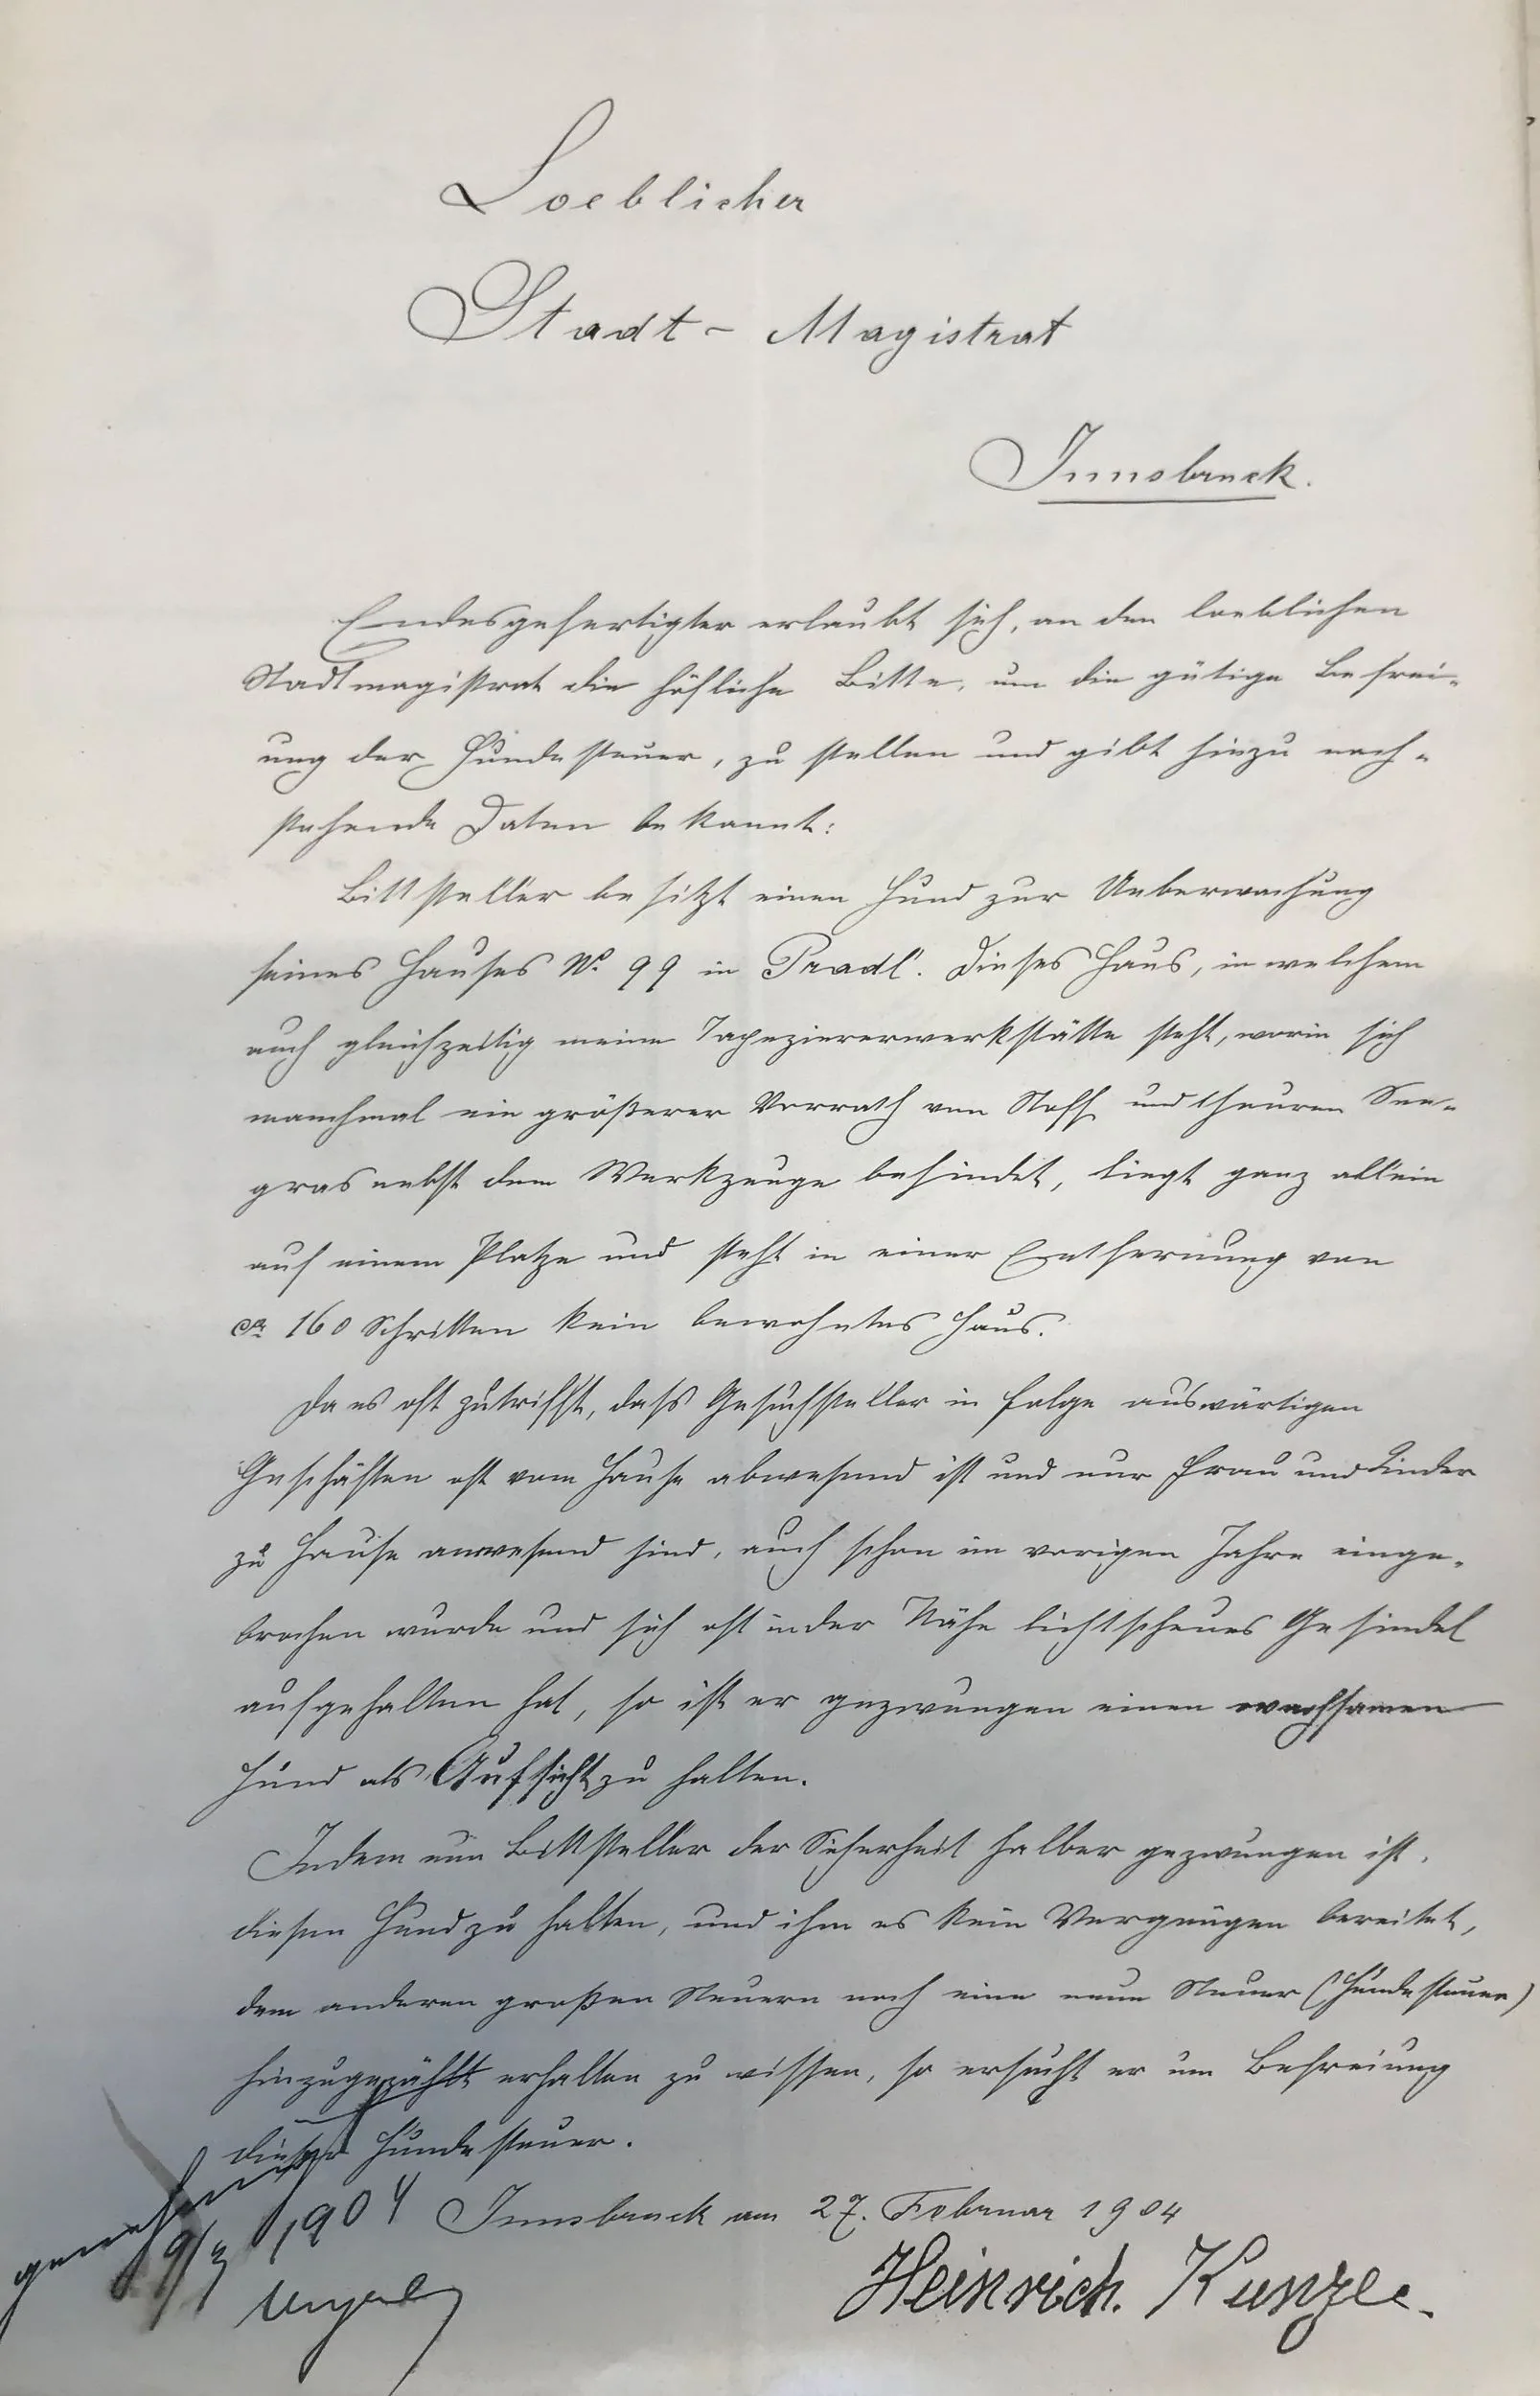 Loeblicher
Stadt- Magistrat
Innsbruck.
Endesgefertigter erlaubt sich, an den loeblichen
Stadtmagistrat die höfliche Bitte, um die gütige Befrei-
ung der Hundesteuer, zu stellen und gibt hiezu nach-
stehende Daten bekannt:
Bittsteller besitzt einen Hund zur Ueberwachung
seines Hauses No. 99 in Pradl. Dieses Haus, in welchem
auch gleichzeitig meine Tapeziererwerkstätte steht, worin sich
manchmal ein größerer Vorrath von Stoff und theuren See-
gras nebst dem Werkzeuge befindet, liegt ganz allein
auf einem Platze und steht in einer Entfernung von
ca 160 Schritten kein bewohntes Haus.
Da es oft zutrifft, dass Gesuchsteller in folge auswärtigen
Geschäften oft vom Hause abwesend ist und nur Frau und Kinder
zu Hause anwesend sind, auch schon im vorigen Jahre einge-
brochen wurde und sich oft in der Nähe lichtscheues Gesindel
aufgehalten hat, so ist er gezwungen einen wachsamen
Hund als Aufsicht zu halten.
Indem nun Bittsteller der Sicherheit halber gezwungen ist,
diesen Hund zu halten, und ihm es kein Vergnügen bereitet,
dem anderen großen Steuern noch eine neue Steuer (Hundesteuer)
hinzugezählt erhalten zu wissen, so ersucht er um Befreiung
dieser Hundesteuer.
Innsbruck am 27. Februar 1904
Heinrich Kunze.
9/3 1904